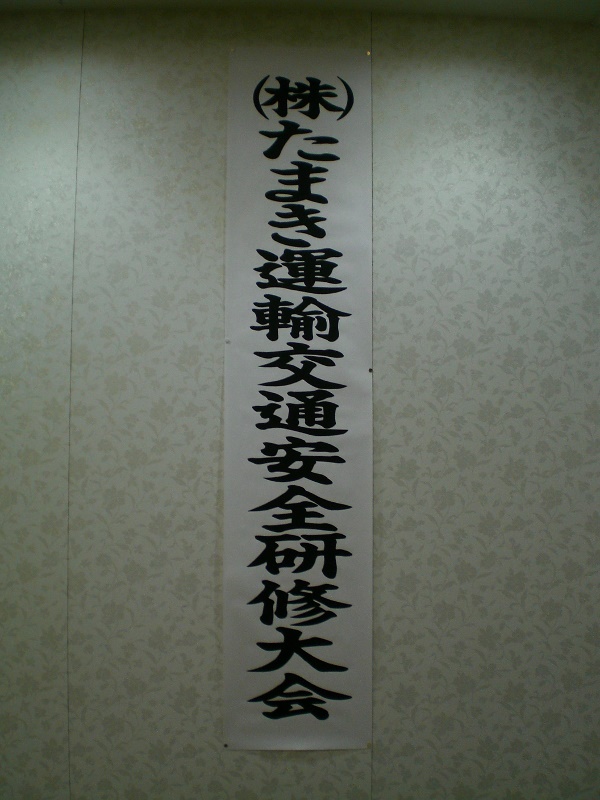 (株)たまき運輸交通安全研修大会